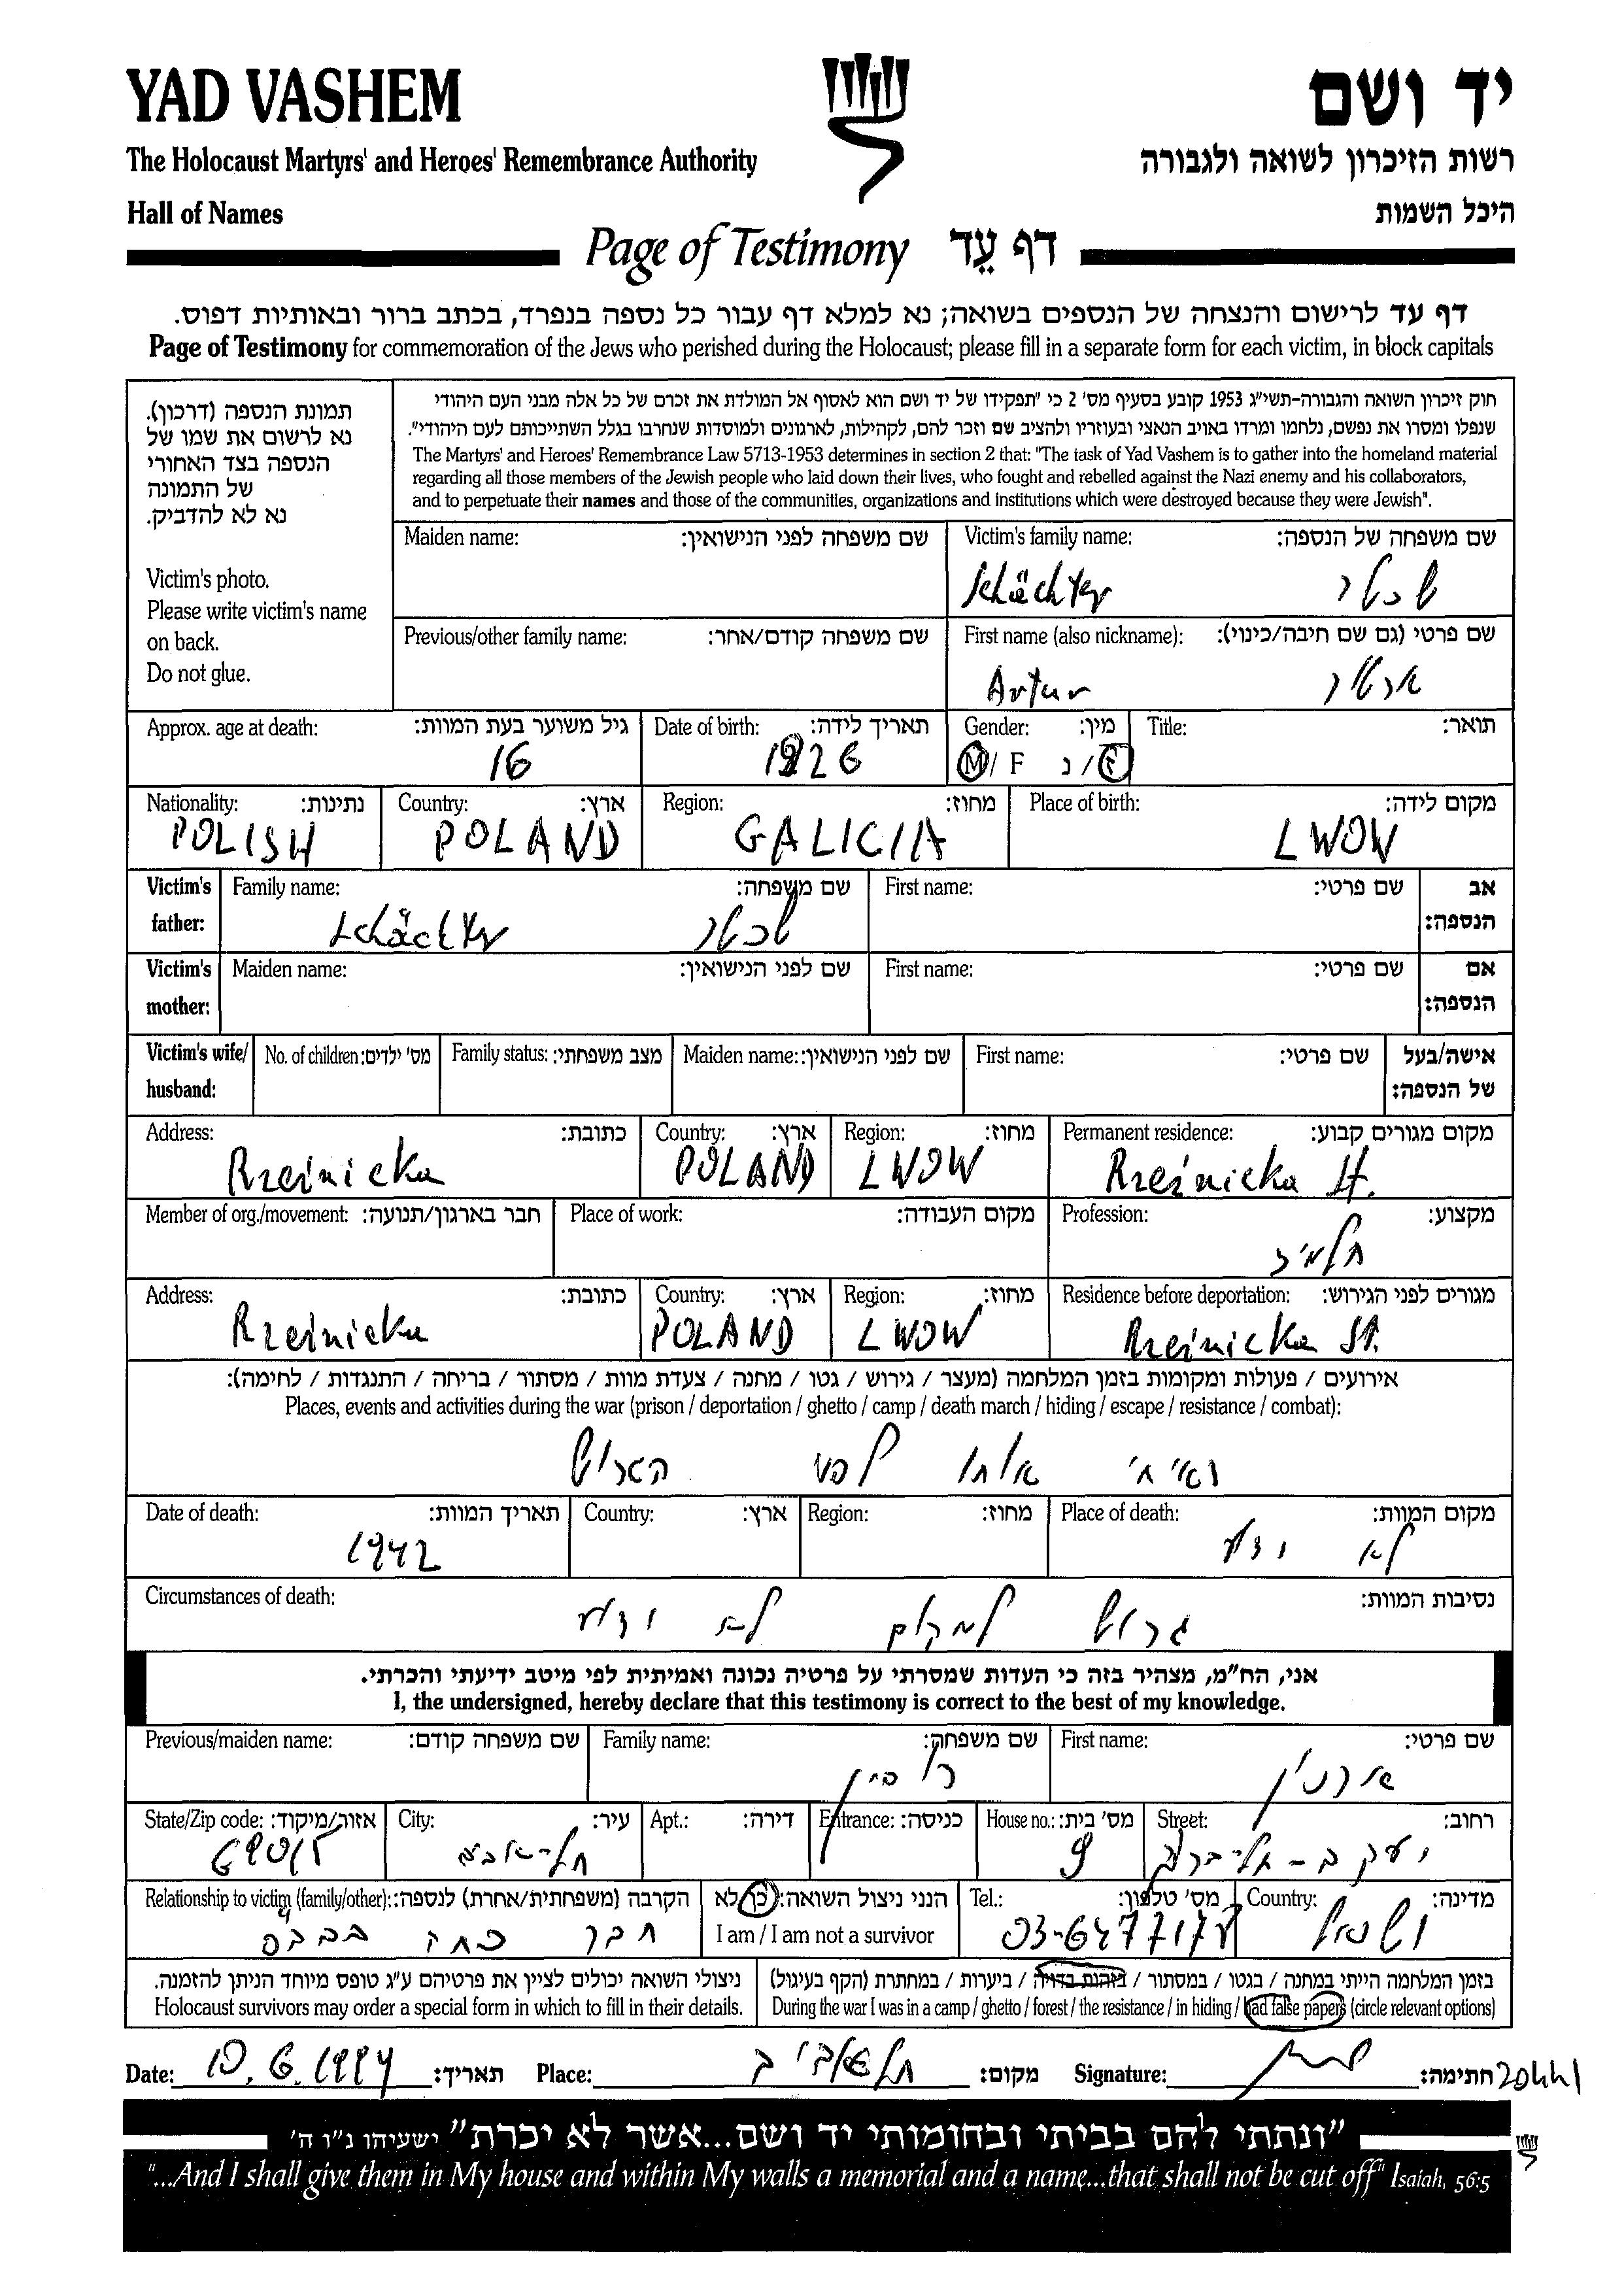 YAD VASHEM
יד ושם
The Holocaust Martyrs' and Heroes' Remembrance Authority
רשות הזיכרון לשואה ולגבורה
Hall of Names
היכל השמות
Page of Testimony דף עֵד
דף עד לרישום והנצחה של הנספים בשואה; נא למלא דף עבור כל נספה בנפרד, בכתב ברור ובאותיות דפוס.
Page of Testimony for commemoration of the Jews who perished during the Holocaust; please fill in a separate form for each victim, in block capitals
תמונת הנספה (דרכון).
נא לרשום את שמו של
הנספה בצד האחורי
של התמונה
נא לא להדביק.
Victim's photo.
Please write victim's name
on back.
Do not glue.
חוק זיכרון השואה והגבורה-תשי״ג 1953 קובע בסעיף מס' 2 כי "תפקידו של יד ושם הוא לאסוף אל המולדת את זכרם של כל אלה מבני העם היהודי
שנפלו ומסרו את נפשם, נלחמו ומרדו באויב הנאצי ובעוזריו ולהציב שם וזכר להם, לקהילות, לארגונים ולמוסדות שנחרבו בגלל השתייכותם לעם היהודי".
The Martyrs' and Heroes' Remembrance Law 5713-1953 determines in section 2 that: "The task of Yad Vashem is to gather into the homeland material
regarding all those members of the Jewish people who laid down their lives, who fought and rebelled against the Nazi enemy and his collaborators,
and to perpetuate their names and those of the communities, organizations and institutions which were destroyed because they were Jewish".
Maiden name: שם משפחה לפני הנישואין:
Victim's family name: שם משפחה של הנספה:
Schächter שכטר
Previous/other family name: שם משפחה קודם/אחר:
First name (also nickname): שם פרטי (גם שם חיבה/כינוי):
Artur ארטור
Approx. age at death: גיל משוער בעת המוות: Date of birth: תאריך לידה: Gender: מין: Title: תואר:
16 1926 M / F ז / נ
Nationality: נתינות: Country: ארץ: Region: מחוז: Place of birth: מקום לידה:
POLISH POLAND GALICIA LWOW
Victim's father: Family name: שם משפחה: First name: שם פרטי: אב הנספה:
Schächter שכטר
Victim's mother: Maiden name: שם לפני הנישואין: First name: שם פרטי: אם הנספה:
Victim's wife/ husband: No. of children: מס' ילדים: Family status: מצב משפחתי: Maiden name: שם לפני הנישואין: First name: שם פרטי: אישה/בעל של הנספה:
Address: כתובת: Country: ארץ: Region: מחוז: Permanent residence: מקום מגורים קבוע:
Rzeźnicka POLAND LWOW Rzeźnicka St.
Member of org./movement: חבר בארגון/תנועה: Place of work: מקום העבודה: Profession: מקצוע:
תלמיד
Address: כתובת: Country: ארץ: Region: מחוז: Residence before deportation: מגורים לפני הגירוש:
Rzeźnicka POLAND LWOW Rzeźnicka St.
אירועים / פעולות ומקומות בזמן המלחמה (מעצר / גירוש / גטו / מחנה / צעדת מוות / מסתור / בריחה / התנגדות / לחימה):
Places, events and activities during the war (prison / deportation / ghetto / camp / death march / hiding / escape / resistance / combat):
ראיתי אותו לפני הגרוש
Date of death: תאריך המוות: Country: ארץ: Region: מחוז: Place of death: מקום המוות:
1942 לא ידוע
Circumstances of death: נסיבות המוות:
גרוש למקום לא ידוע
אני, הח"מ, מצהיר בזה כי העדות שמסרתי על פרטיה נכונה ואמיתית לפי מיטב ידיעתי והכרתי.
I, the undersigned, hereby declare that this testimony is correct to the best of my knowledge.
Previous/maiden name: שם משפחה קודם: Family name: שם משפחה: First name: שם פרטי:
State/Zip code: אזור/מיקוד: City: עיר: Apt.: דירה: Entrance: כניסה: House no.: מס' בית: Street: רחוב:
69015 תל-אביב 9
Relationship to victim (family/other): הקרבה (משפחתית/אחרת) לנספה: הנני ניצול השואה: כן לא Tel.: מס' טלפון: Country: מדינה:
I am / I am not a survivor
חבר כתה 03-6477178 ישראל
ניצולי השואה יכולים לציין את פרטיהם ע״ג טופס מיוחד הניתן להזמנה.
Holocaust survivors may order a special form in which to fill in their details.
בזמן המלחמה הייתי במחנה / בגטו / במסתור / בזהות בדויה / ביערות / במחתרת (הקף בעיגול)
During the war I was in a camp / ghetto / forest / the resistance / in hiding / had false papers (circle relevant options)
Date: 10.6.1999 תאריך: Place: תל אביב מקום: Signature: חתימה: 204441
"ונתתי להם בביתי ובחומותי יד ושם...אשר לא יכרת" ישעיהו נ״ו ה'
"...And I shall give them in My house and within My walls a memorial and a name...that shall not be cut off" Isaiah, 56:5